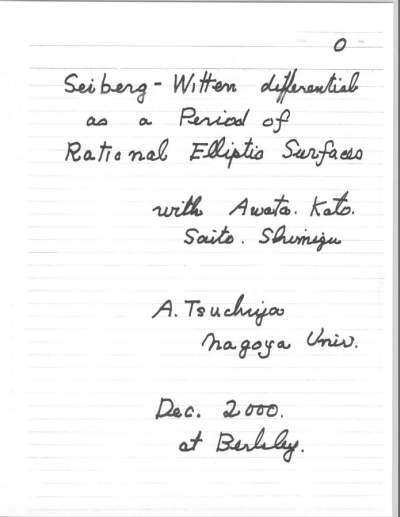 0
Seiberg - Witten differential
as a Period of
Rational Elliptic Surfaces
with Awata. Kato.
Saito. Shimizu
A. Tsuchiya
Nagoya Univ.
Dec. 2000.
at Berkley.